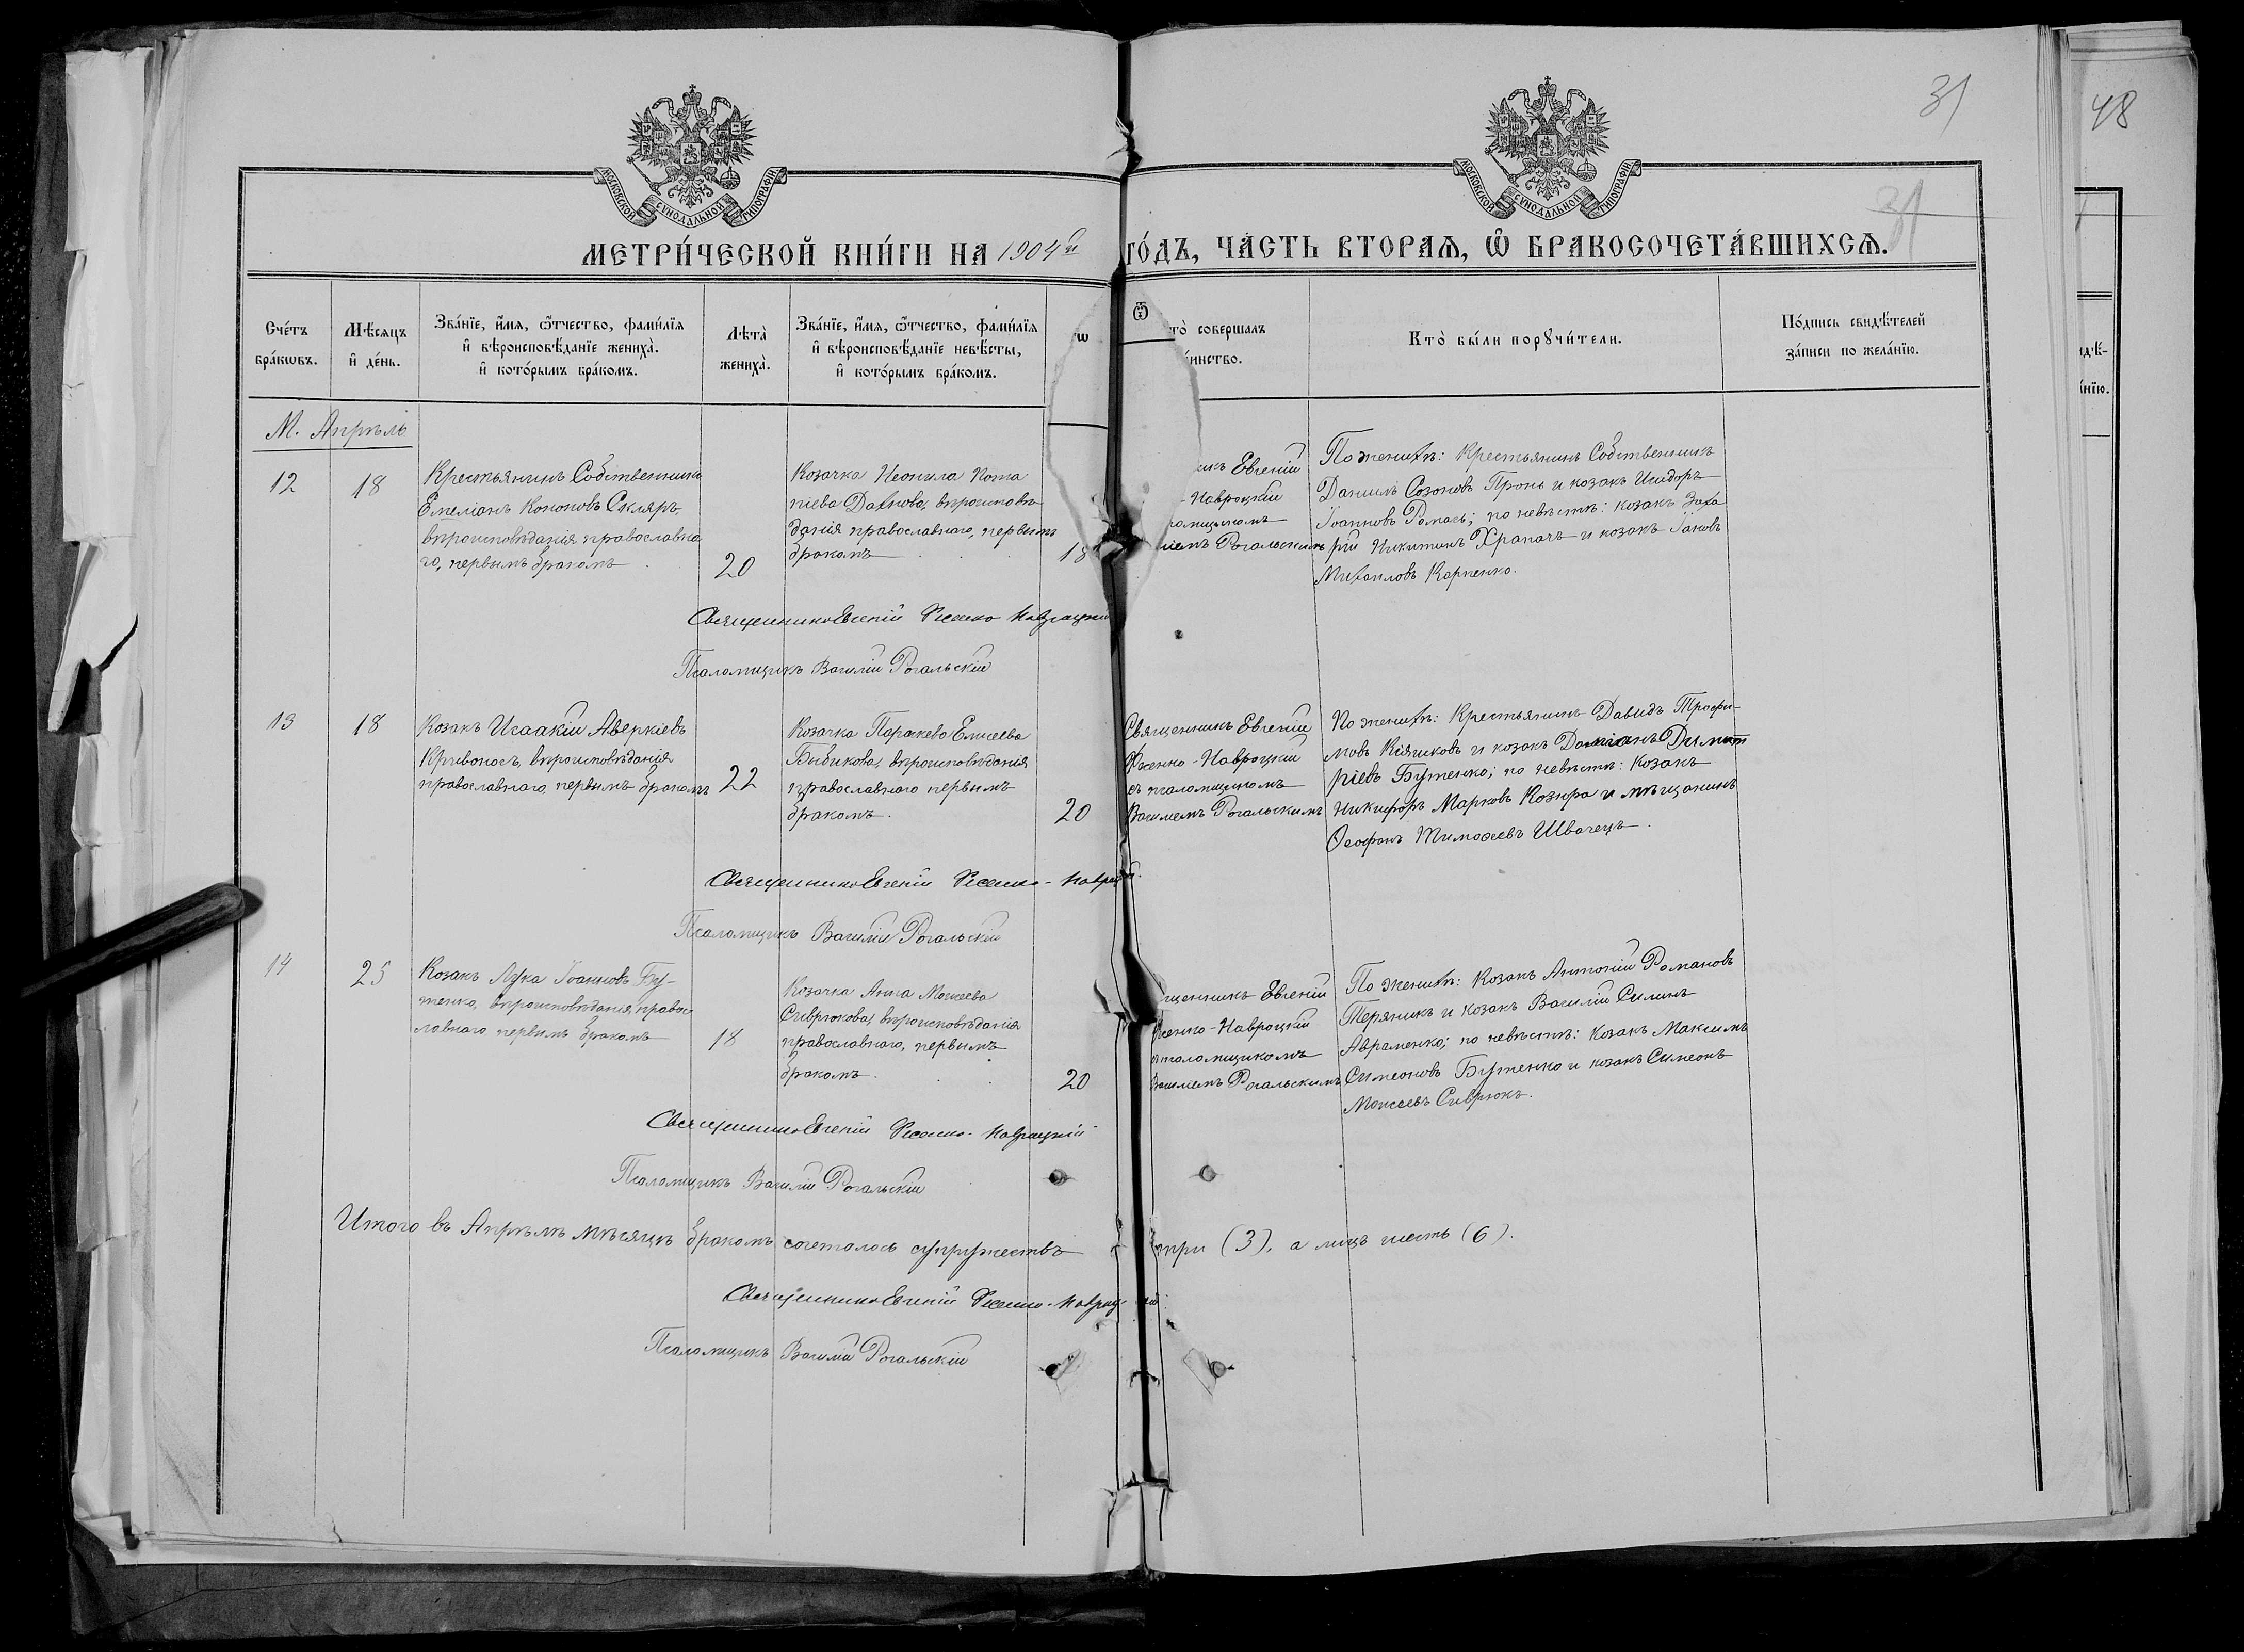 31
48
31
МОСКОВСКОЙ СУНОДАЛЬНОЙ ТИПОГРАФІИ
МОСКОВСКОЙ СУНОДАЛЬНОЙ ТИПОГРАФІИ
МЕТРИ́ЧЕСКОЙ КНИ́ГИ НА 1904й ГО́ДЪ, ЧА́СТЬ ВТОРАѦ, Ѡ БРАКОСОЧЕТА́ВШИХСѦ.
Сче́тъ
бра́кѡвъ.
Мѣ́сѧцъ
и҆ де́нь.
Зва́нїе, и҆́мѧ, ѻ҆́тчество, фами́лїѧ
и҆ вѣроисповѣ́данїе жениха̀.
и҆ кото́рымъ бра́комъ.
Лѣта̀
жениха̀.
Зва́нїе, и҆́мѧ, ѻ҆́тчество, фами́лїѧ
и҆ вѣроисповѣ́данїе невѣ́сты,
и҆ кото́рымъ бра́комъ.
то̀ совершалъ
инство.
Кто̀ бы́ли порꙋчи́тели.
По́дпись свидѣ́телей
за́писи по жела́нїю.
М. Апрѣль
12
18
Крестьянинъ Собственникъ
Емеліанъ Кононовъ Скляръ
вѣроисповѣданія православна
го, первымъ бракомъ
20
Козачка Неонила Пота
піева Дахнова, вѣроисповѣ
данія православнаго, первымъ
бракомъ
18
икъ Евгеній
-Навроцкій
ломщикомъ
ліемъ Рогальскимъ
По женихѣ: Крестьянинъ Собственникъ
Даніилъ Созоновъ Пронь и козакъ Исидоръ
Іоанновъ Ромась; по невѣстѣ: козакъ Заха
рій Никитинъ Храпачъ и козакъ Іаковъ
Михаиловъ Карпенко.
Священникъ Евгеній Фесенко Навроцкій
Псаломщикъ Василій Рогальскій
13
18
Козакъ Исаакій Аверкіевъ
Кривоносъ, вѣроисповѣданія
православнаго, первымъ бракомъ
22
Козачка Параскева Елисеева
Бибикова, вѣроисповѣданія
православнаго первымъ
бракомъ.
20
Священникъ Евгеній
Фесенко-Навроцкій
съ псаломщикомъ
Василіемъ Рогальскимъ
По женихѣ: Крестьянинъ Давидъ Трофи-
мовъ Кіяшковъ и козакъ Даміанъ Димит
ріевъ Бутенко; по невѣстѣ: Козакъ
Никифоръ Марковъ Козюра и мѣщанинъ
Ѳеофанъ Тимоѳеевъ Швачецъ.
Священникъ Евгеній Фесенко-Навроцкій.
Псаломщикъ Василій Рогальскій
14
25
Козакъ Лука Іоанновъ Бу-
тенко, вѣроисповѣданія право
славнаго первымъ бракомъ
18
Козачка Анна Моисеева
Сиврюкова, вѣроисповѣданія
православнаго, первымъ
бракомъ.
20
щенникъ Евгеній
сенко-Навроцкій
псаломщикомъ
Василіемъ Рогальскимъ
По женихѣ: Козакъ Антоній Романовъ
Теряникъ и козакъ Василій Силинъ
Авраменко; по невѣстѣ: Козакъ Максимъ
Симеоновъ Бутенко и козакъ Симеонъ
Моисеевъ Сиврюкъ.
Священникъ Евгеній Фесенко-Навроцкій
Псаломщикъ Василій Рогальскій
Итого въ Апрѣлѣ мѣсяцѣ бракомъ сочеталось супружествъ три (3), а лицъ шесть (6).
Священникъ Евгеній Фесенко-Навроцкій.
Псаломщикъ Василій Рогальскій